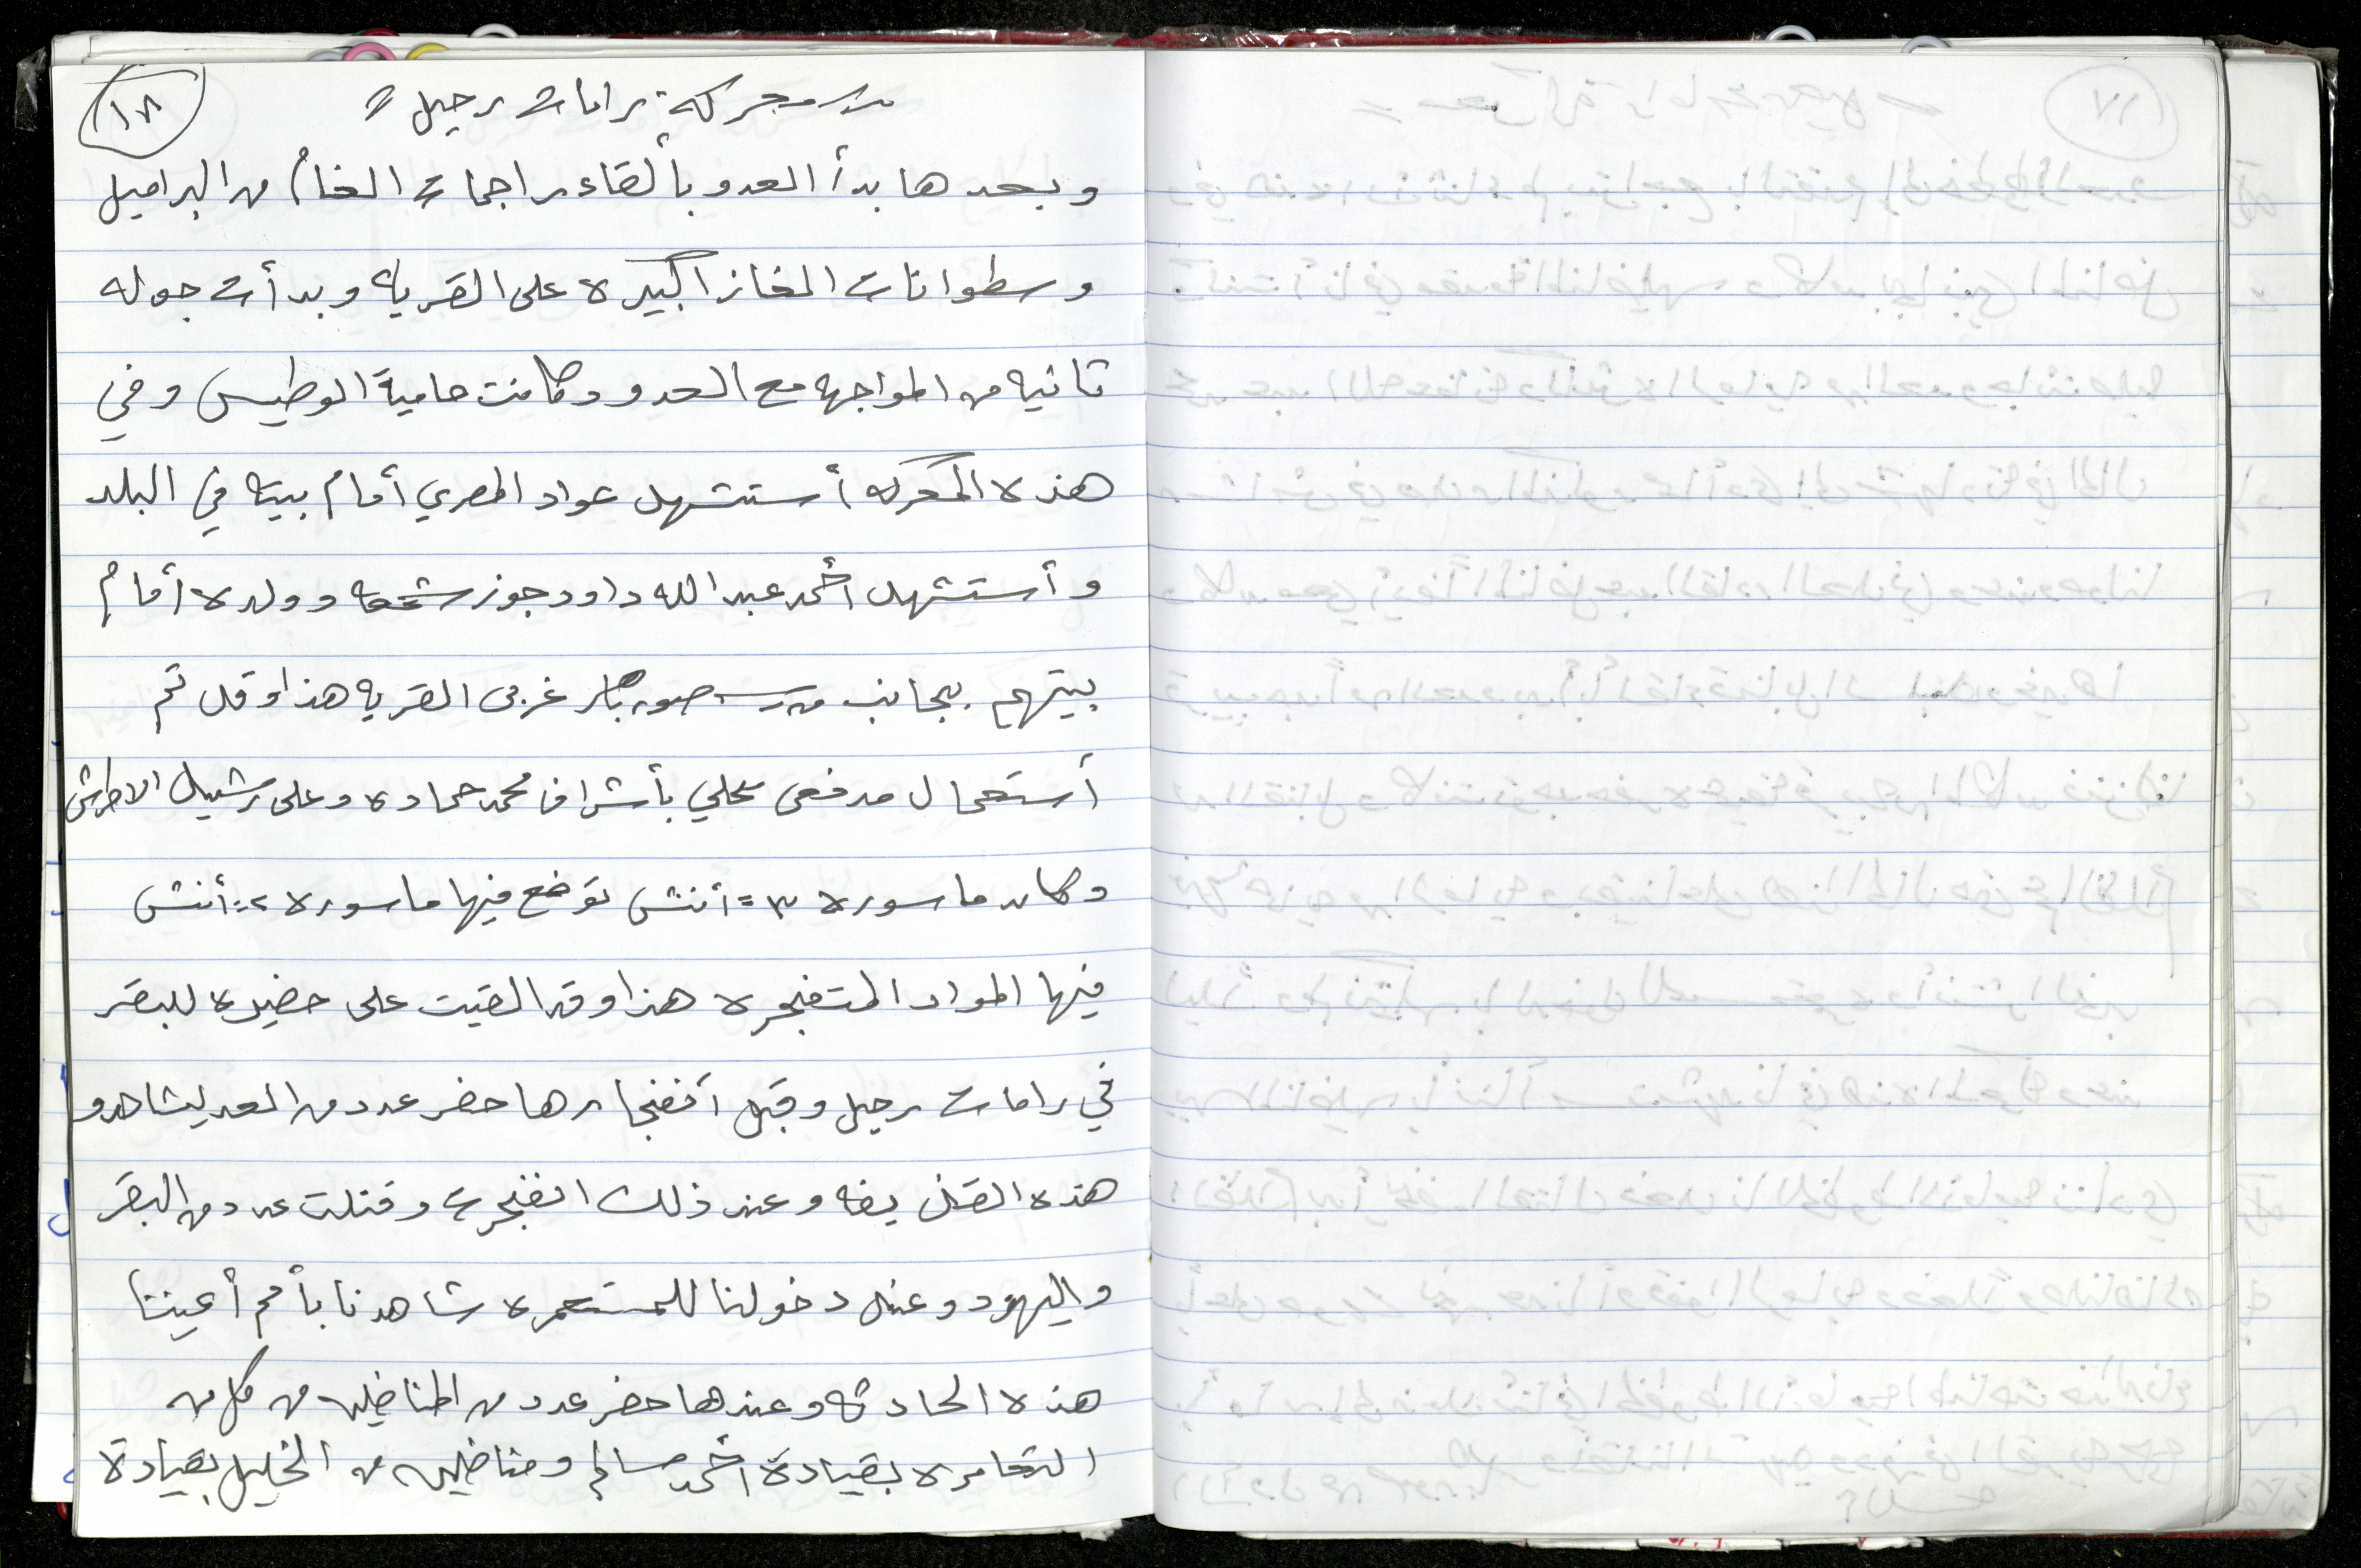 ١٨
معركة رامات رحيل =
وبعدها بدأ العدو بألقاء راجمات الغام من البراميل
وسطوانات الغاز الكبيره على القريه وبدأت جوله
ثانيه من المواجهه مع العدو وكانت حامية الوطيس وفي
هذه المعركه أستشهد عواد المصري أمام بيته في البلد
وأستشهد أحمد عبد الله داود جوز شمعه وولده أمام
بيتهم بجانب صور باهر غربي القريه هذا وقد تم
أستعمال مدفعي محلي بأشراف محمد حماده وعلى رشيد الاطرش
وكان ماسوره ٣ = أنش توضع فيها ماسوره ٢ = أنش
فيها المواد المتفجره هذا وقد القيت على حضيره للبقر
في رامات رحيل وقبل أنفجارها حضر عدد من العد ليشاهدو
هذه القذيفه وعند ذلك انفجرت وقتلت عدد من البقر
واليهود وعند دخولنا للمستعمره شاهدنا بأم أعيننا
هذه الحادثه وعندها حضر عدد من المناضلين من كل من
التعامره بقيادة أحمد سالم ومناضلين من الخليل بقيادة